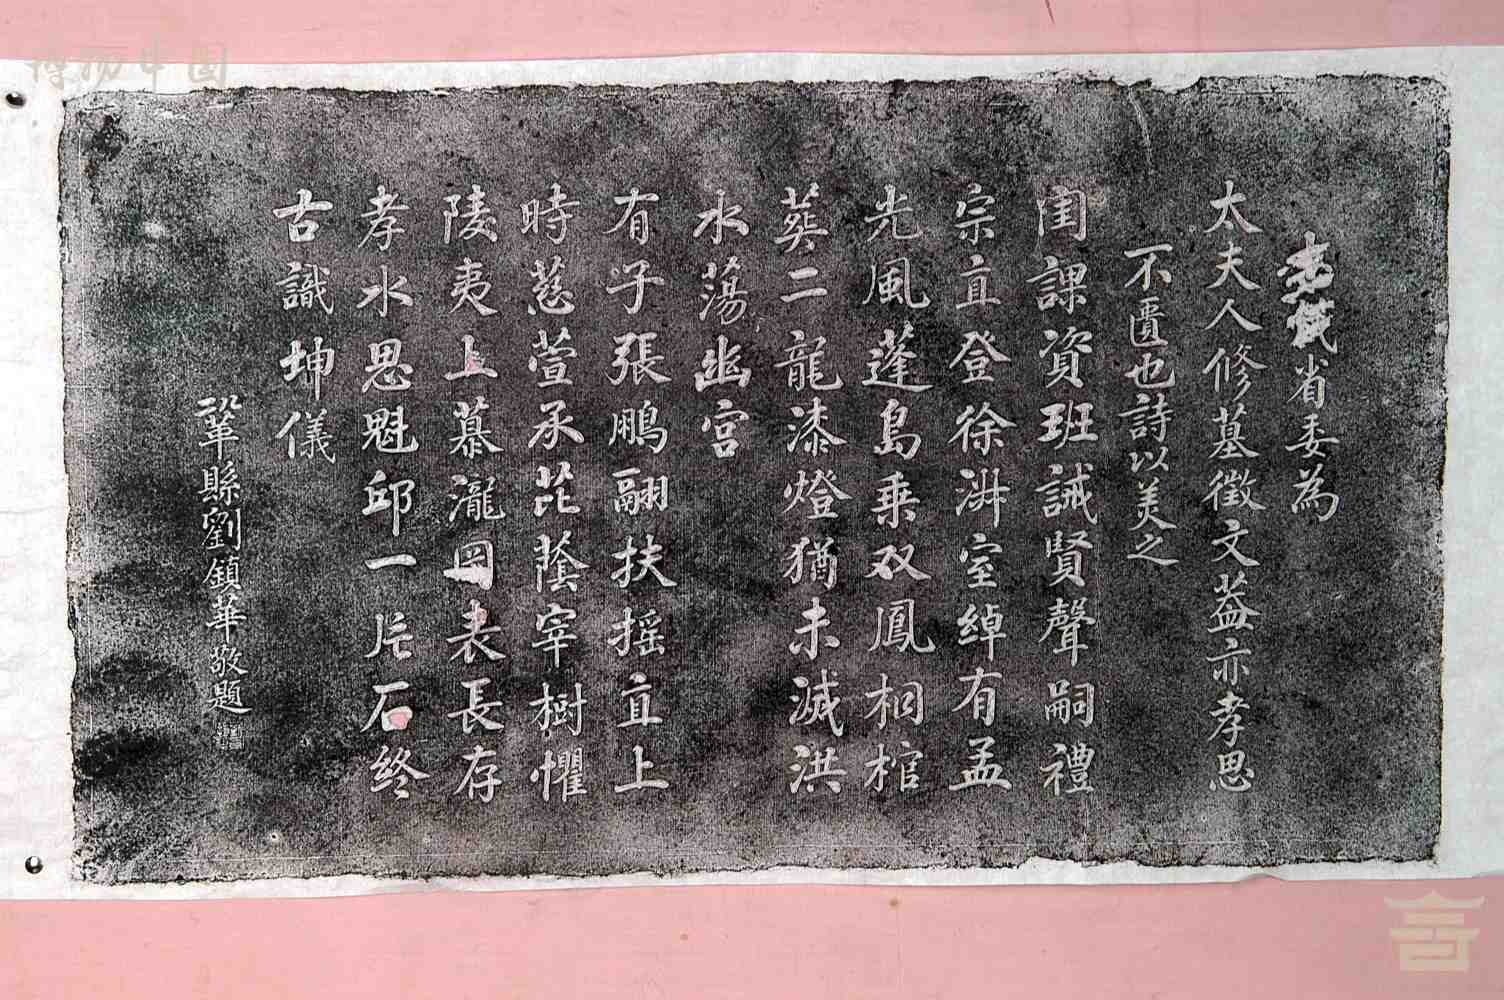 省委為
太夫人修墓徵文葢亦孝思
不匱也詩以美之
閨課資班誡賢聲嗣禮
宗直登徐淋室綽有孟
光風蓬島乗双鳳桐棺
葬二龍漆燈猶未滅洪
水蕩幽宮
有子張鵬翮扶摇直上
時慈萱承芘蔭宰樹懼
陵夷上墓瀧岡表長存
孝水思魁邱一片石終
古識坤儀
鞏縣劉鎮華敬題
博物中国